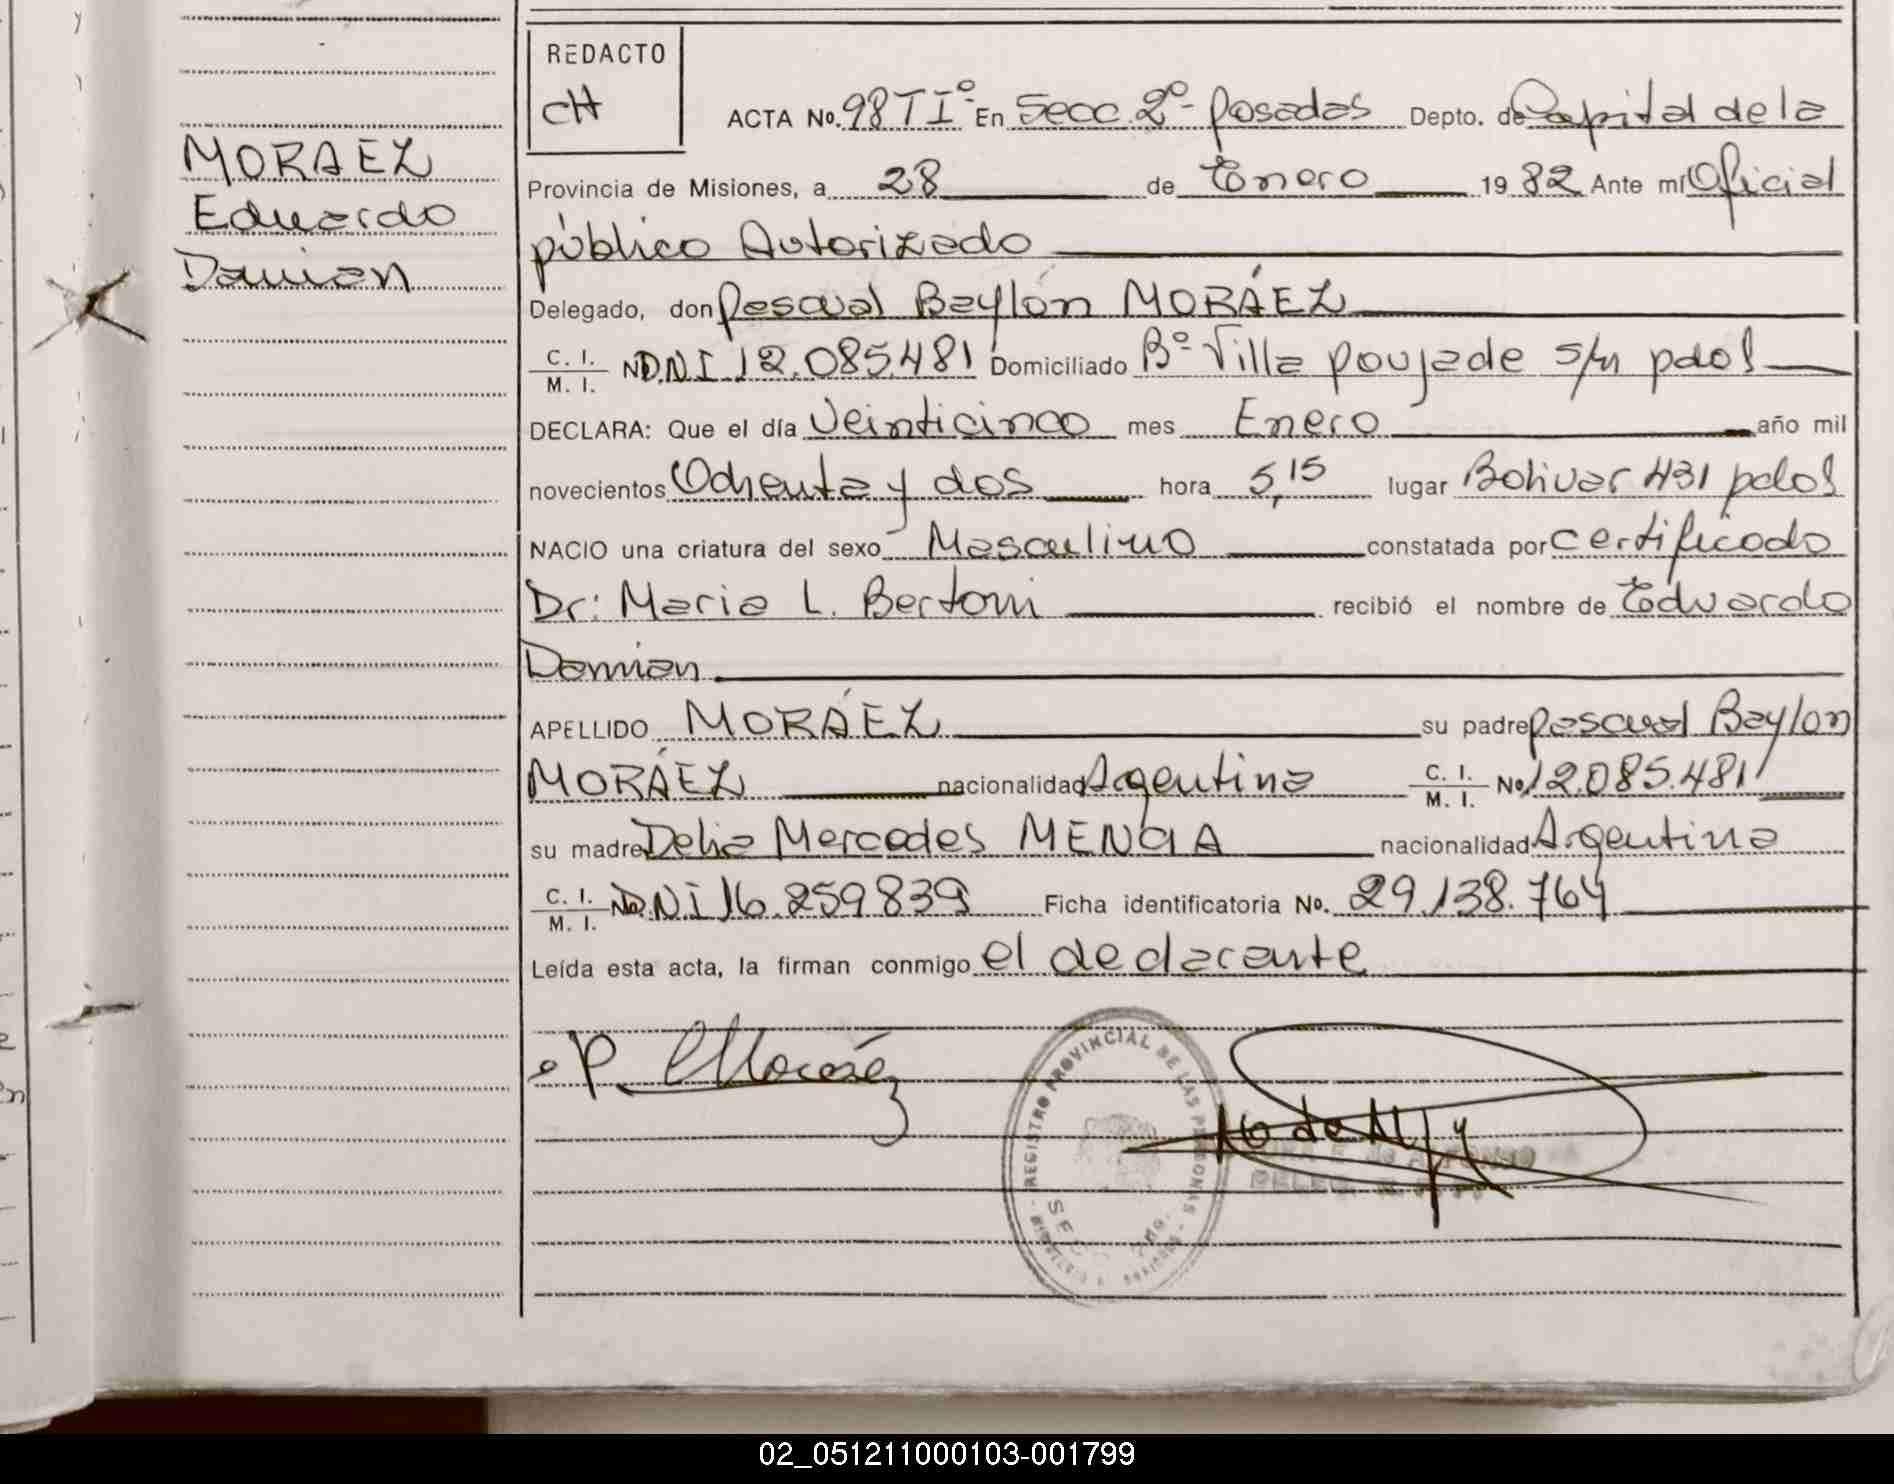 REDACTO
CH
ACTA No. 98 T Iº- En Secc. 2º- Posadas Depto. de Capital de la
MORAEZ
Eduardo
Damian
Provincia de Misiones, a 28 de Enero 19 82 Ante mí Oficial
público Autorizado
Delegado, don Pascual Baylón MORÁEZ
C. I. / M. I. No D.N.I 12.085.481 Domiciliado Bº Villa Poujade s/n pdas
DECLARA: Que el día Veinticinco mes Enero año mil
novecientos Ochenta y dos hora 5,15 lugar Bolivar 431 pdas
NACIO una criatura del sexo Masculino constatada por certificado
Dr: Maria L. Bertoni recibió el nombre de Eduardo
Damian
APELLIDO MORÁEZ su padre Pascual Baylon
MORÁEZ nacionalidad Argentina C. I. / M. I. No 12.085.481
su madre Delia Mercedes MENCIA nacionalidad Argentina
C. I. / M. I. No D.N.I 16.259.839 Ficha identificatoria No. 29.138.764
Leída esta acta, la firman conmigo el declarante
P. Moráez
REGISTRO PROVINCIAL DE LAS PERSONAS
02_051211000103-001799